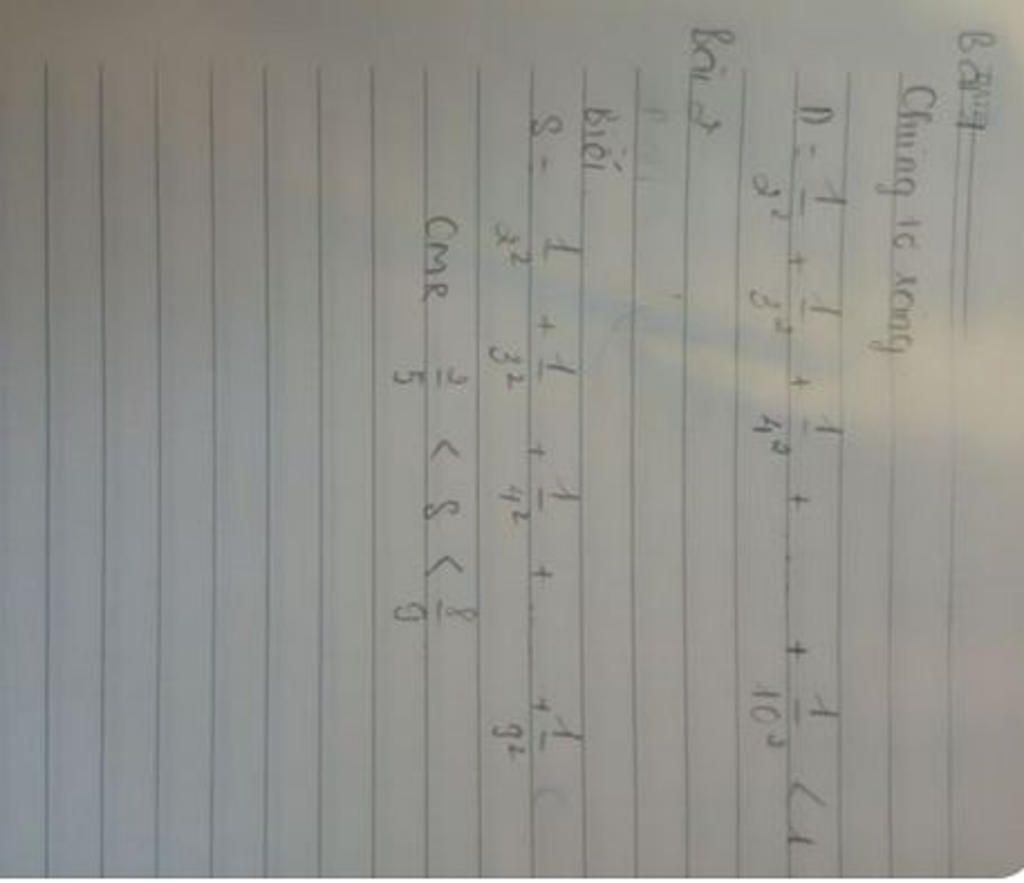 Bài 1
Chứng tỏ rằng
D = 1/2² + 1/3² + 1/4² + ... + 1/10² < 1
Bài 2
Biết
S = 1/2² + 1/3² + 1/4² + ... + 1/9²
CMR 2/5 < S < 8/9